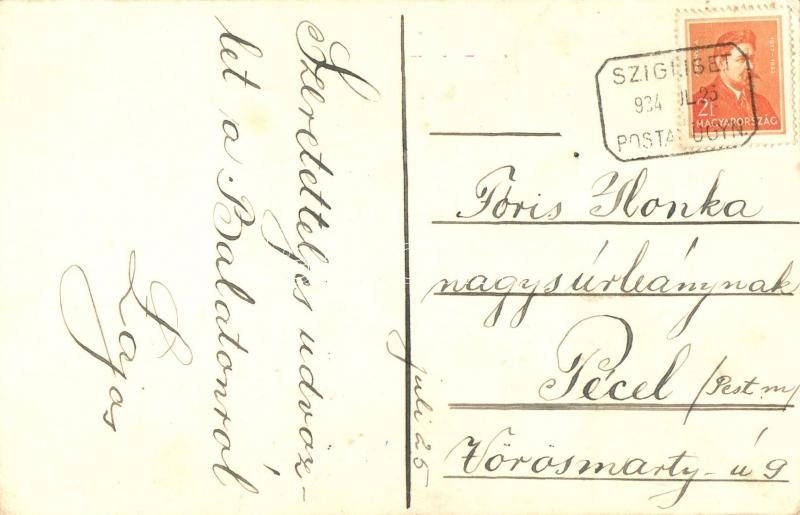 Szeretetteljes üdvöz-
let a Balatonról
Lajos
juli 25
SZIGLIGET
934 JUL 25
POSTAI ÜGYN.
2f
MAGYARORSZÁG
Fóris Ilonka
nagysúrleánynak
Pécel (Pest m)
Vörösmarty-ú 9